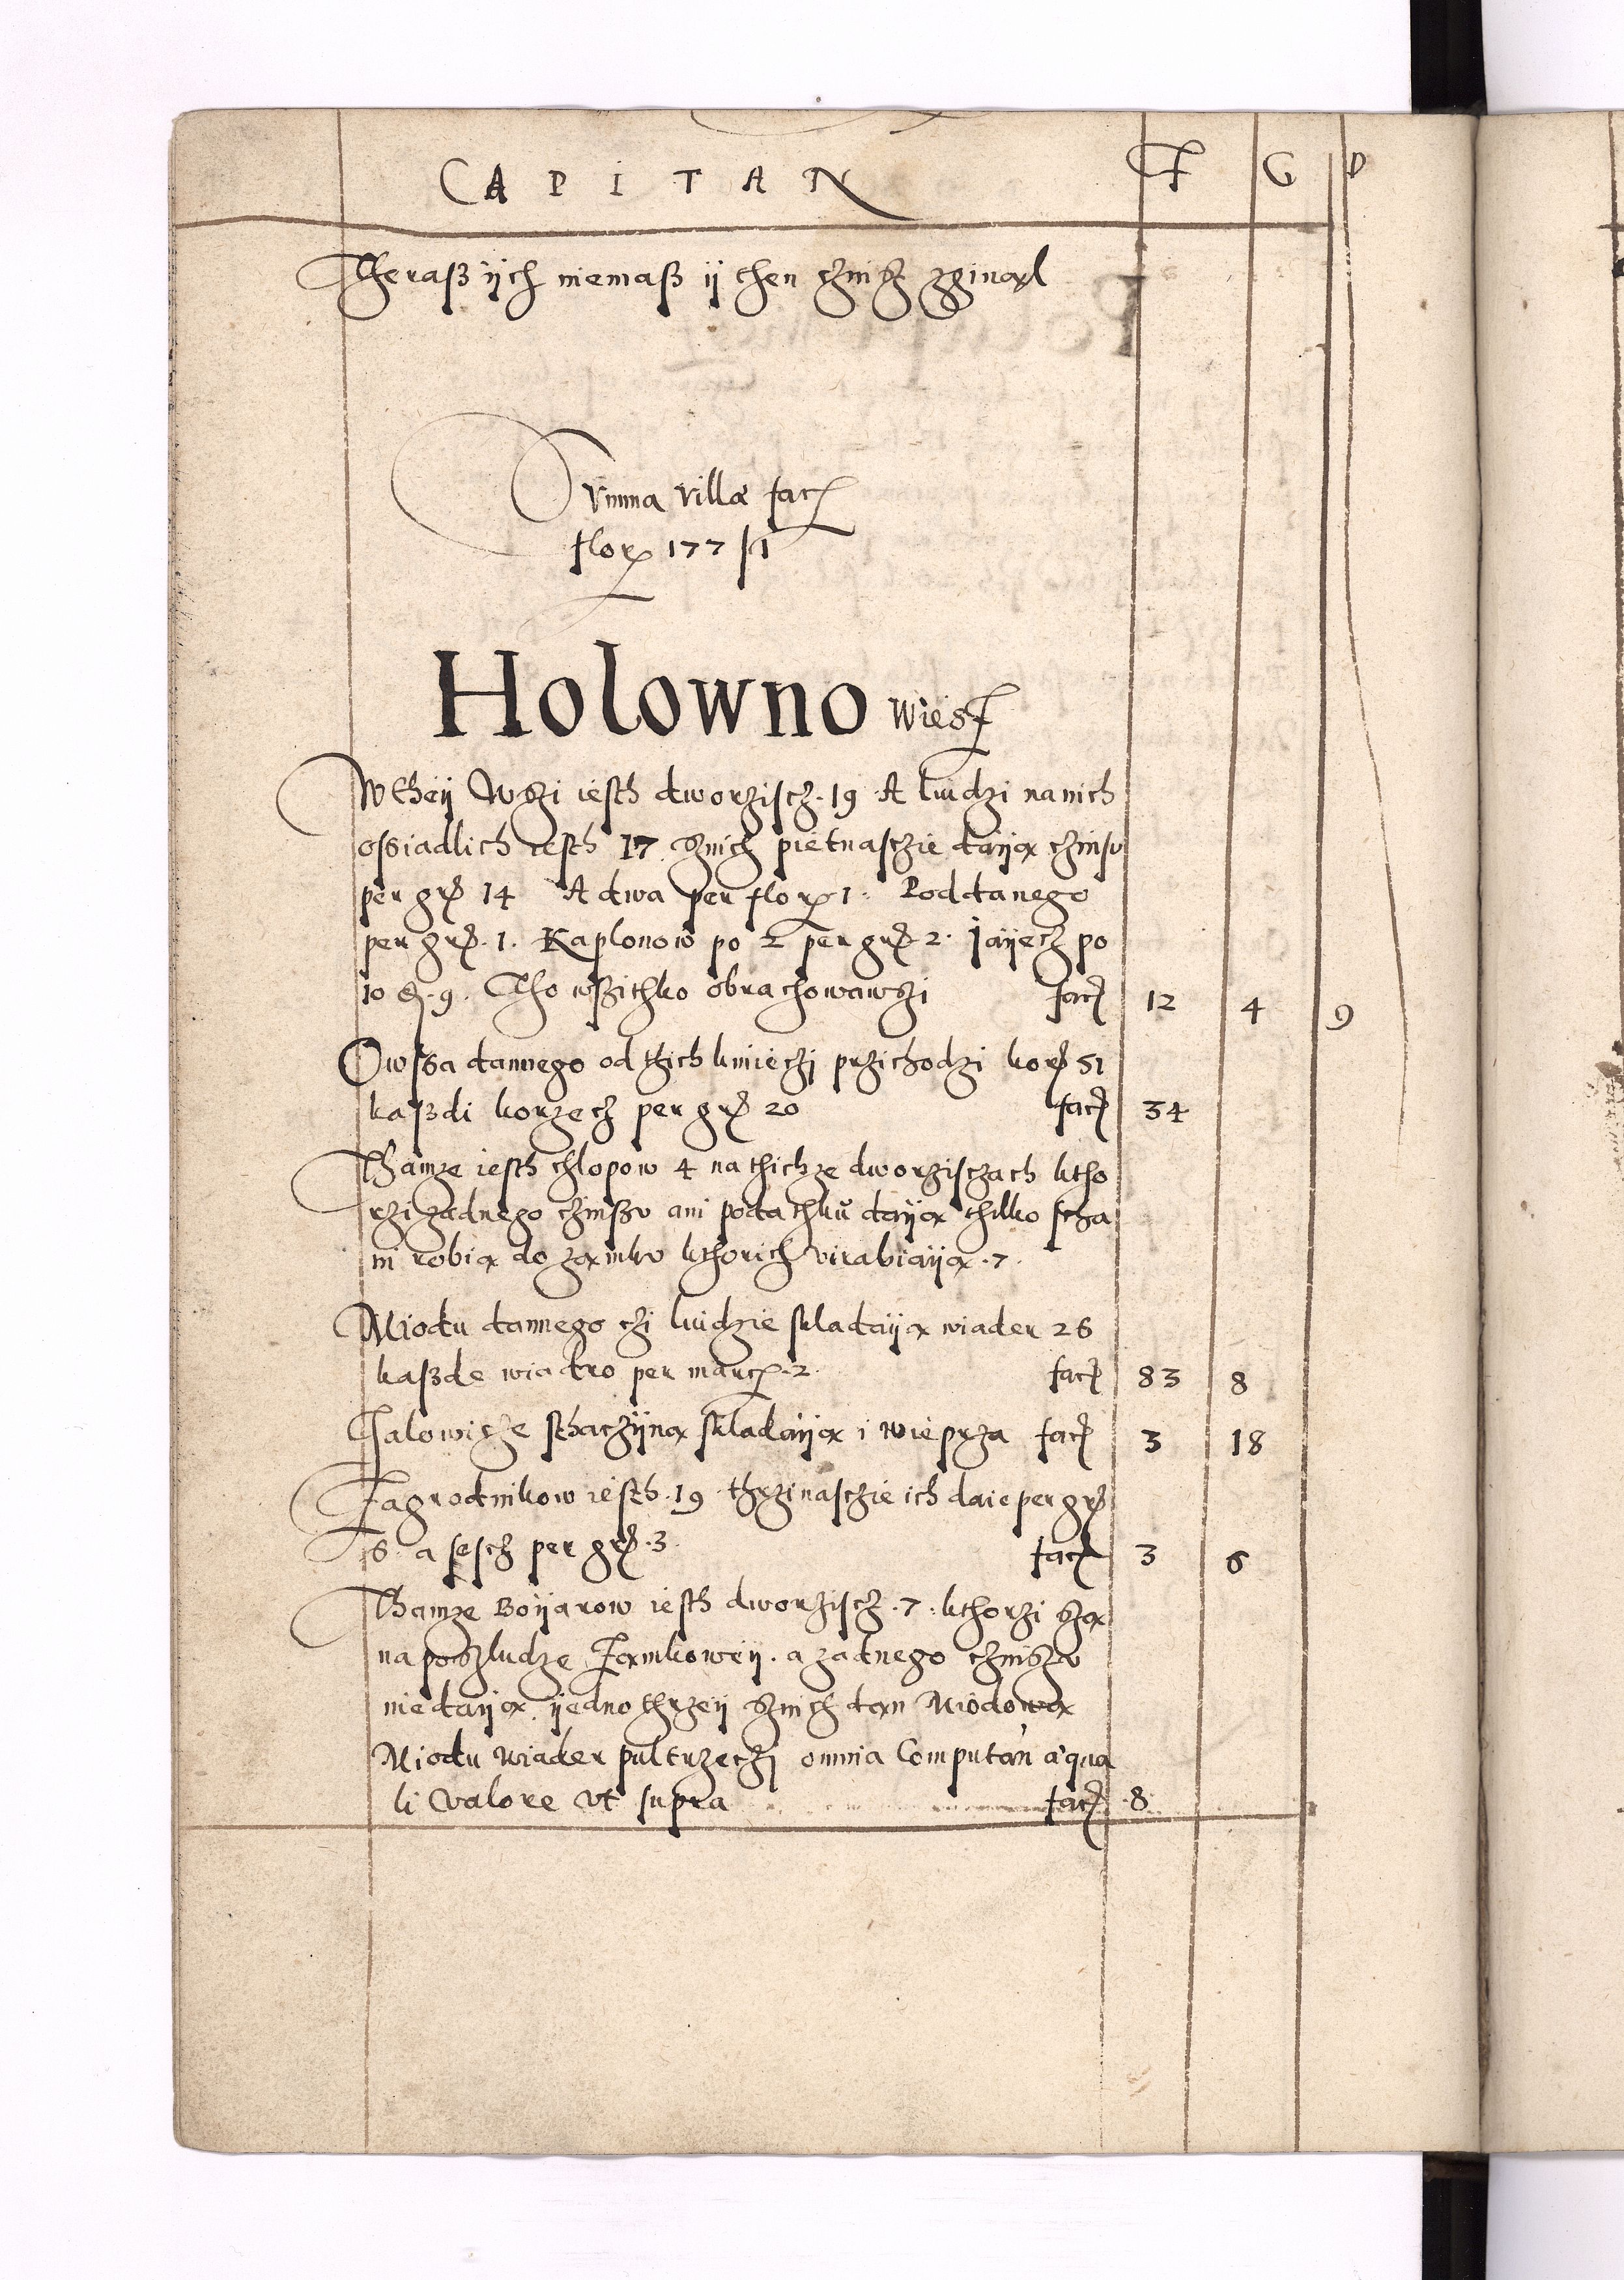 CAPITAN F G D
Theraß ijch niemaß ij then czinsz zginąl
Summa villæ facȷ
flor 177 /1
Holowno wies
W theij Wszi iesth dworziscz · 19 · A ludzi na nich
ossiadlich iesth 17 sznich pietnasczie daija czinsu
per gr 14 A dwa per flor 1 · Poddanego
per gr · 1 · Kaplonow po 2 per gr · 2 · Jaijecz po
10 d · 9 · Tho wszithko obrachowawszi facȷ 12 4 9
Owssa dannego od thich kmieczi przichodzi kor 51
kaßdi korzecz per gr 20 facȷ 34
Thamze iesth chlopow 4 na thichze dworzisczach ktho
rzi zadnego czinszu ani podathku daija thilko scza
ni robia do zamku kthorich virabiaija · 7 ·
Miodu dannego czi ludzie skladaija wiader 26
kaßde wiadro per marc · 2 · facȷ 83 8
Jalowicze sthaczijna skladaija i wieprza facȷ 3 18
Zagrodnikow iesth · 19 · thrzinasczie ich daie per gr
6 a sesch per gr · 3 facȷ 3 6
Thamze Boijarow iesth dworziscz · 7 · kthorzi sza
na poszludze Zamkoweij · a zadnego czinszu
nie daija · ijedno thrzeij sznich dan Miodowa
Miodu wiader pultrzeczi omnia Computan æqua
li valore vt supra facȷ 8